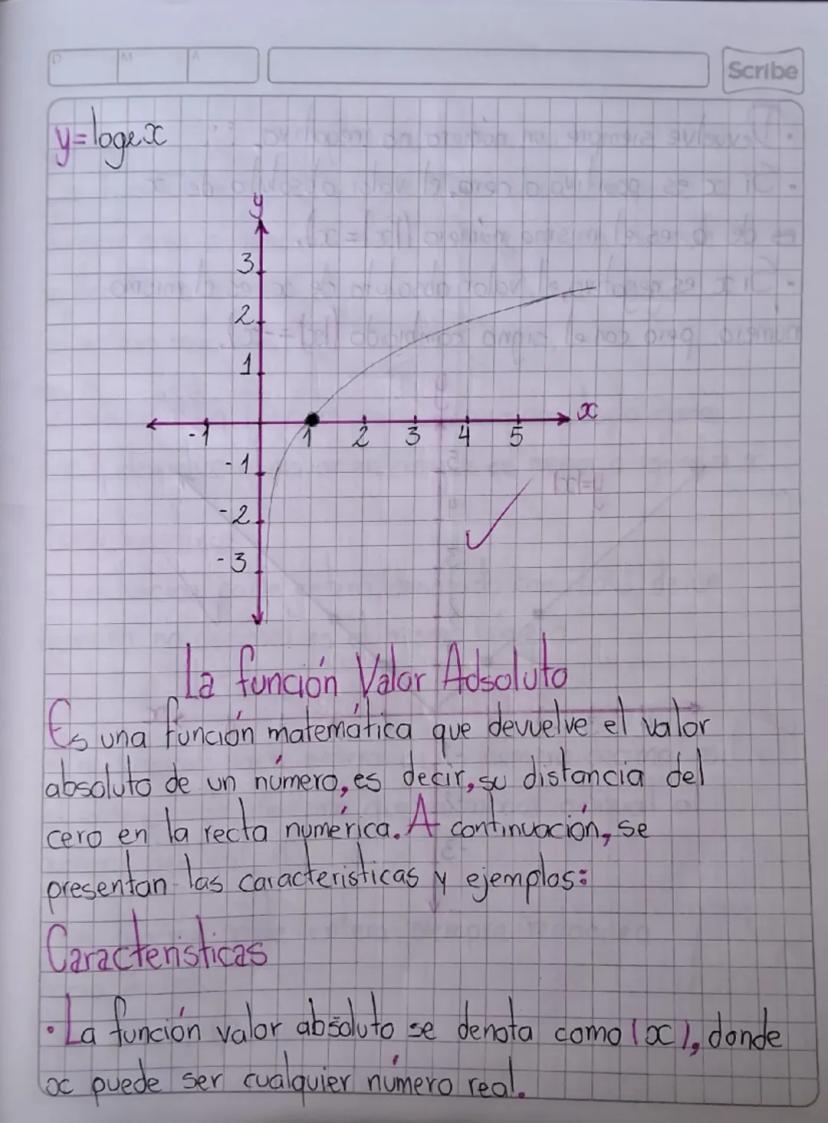 D M A
Scribe
y=logex
y
3
2
1
x
-1 1 2 3 4 5
-1
-2
-3
La función Valor Adsoluto
Es una función matemática que devuelve el valor
absoluto de un número, es decir, su distancia del
cero en la recta numérica. A continuación, se
presentan las caracteristicas y ejemplos:
Caracteristicas
• La función valor absoluto se denota como (x), donde
x puede ser cualquier número real.